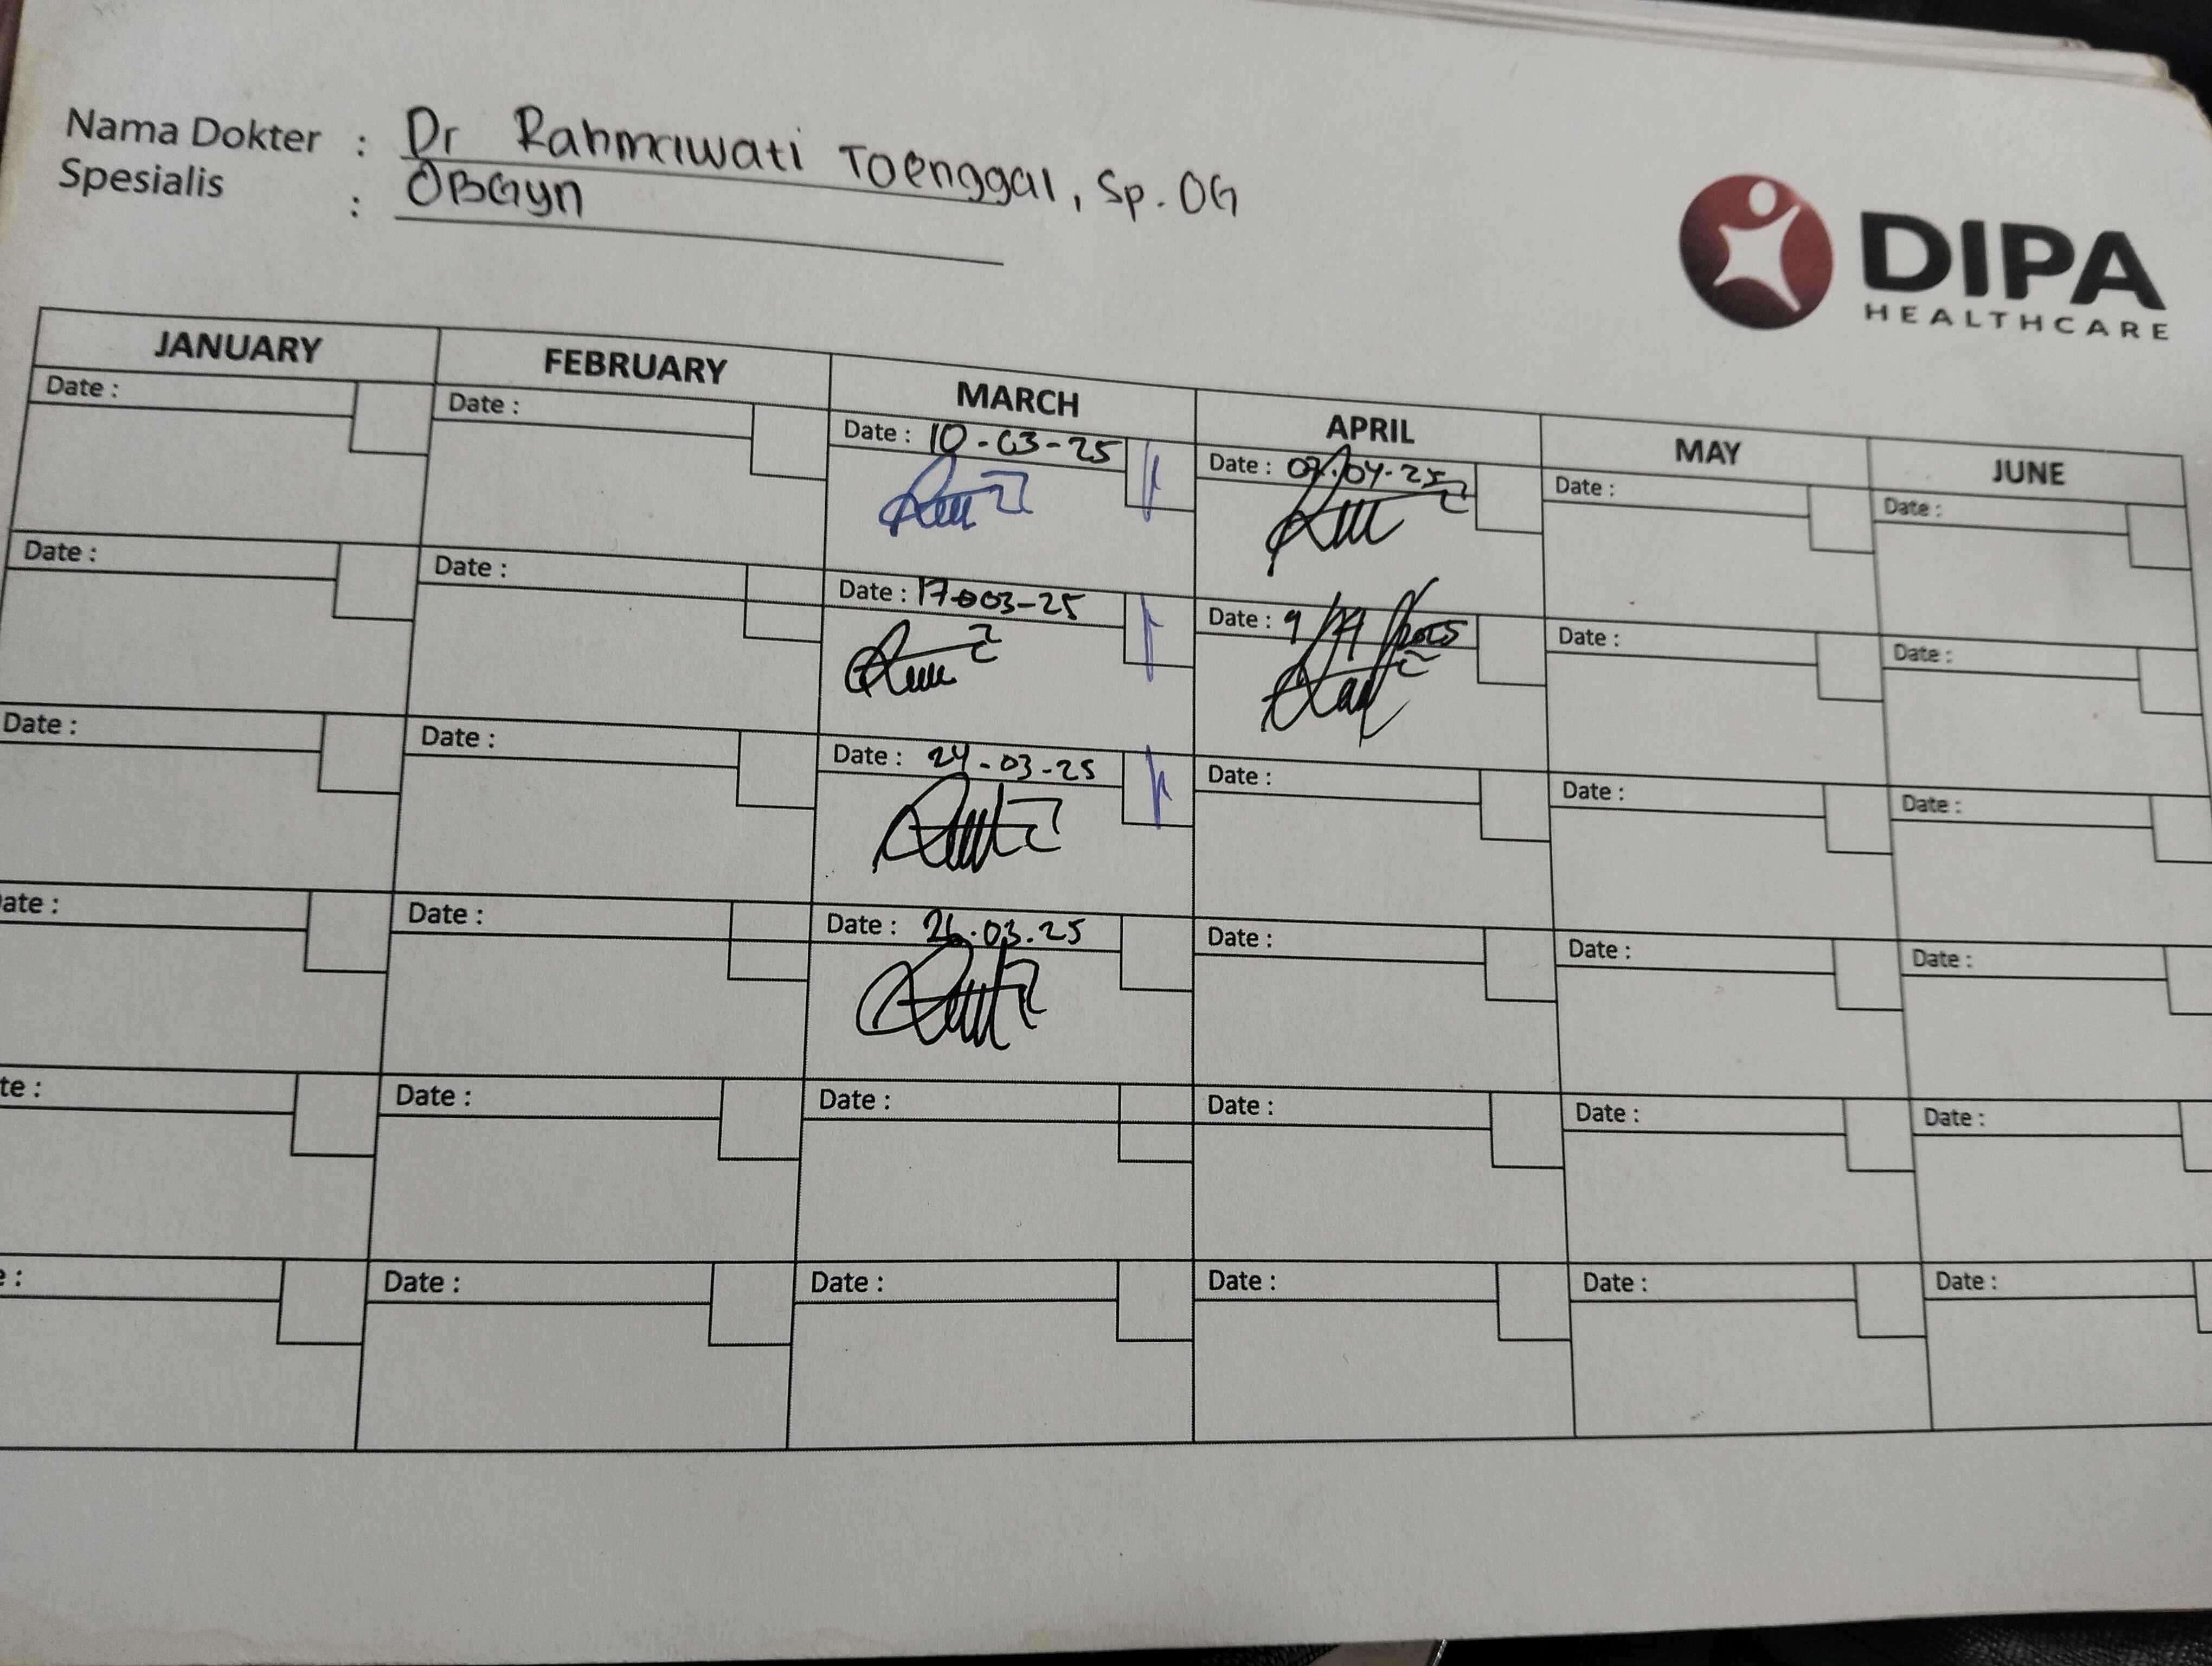 Nama Dokter : Dr Rahmawati Toenggal, Sp.OG
Spesialis : OBGyn
DIPA
HEALTHCARE
JANUARY FEBRUARY MARCH APRIL MAY JUNE
Date : Date : Date : 10-03-25 Date : 07.04.25 Date : Date :
Date : Date : Date : 17-03-25 Date : 9 Date : Date :
Date : Date : Date : 24-03-25 Date : Date : Date :
ate : Date : Date : 26.03.25 Date : Date : Date :
te : Date : Date : Date : Date : Date :
e : Date : Date : Date : Date : Date :